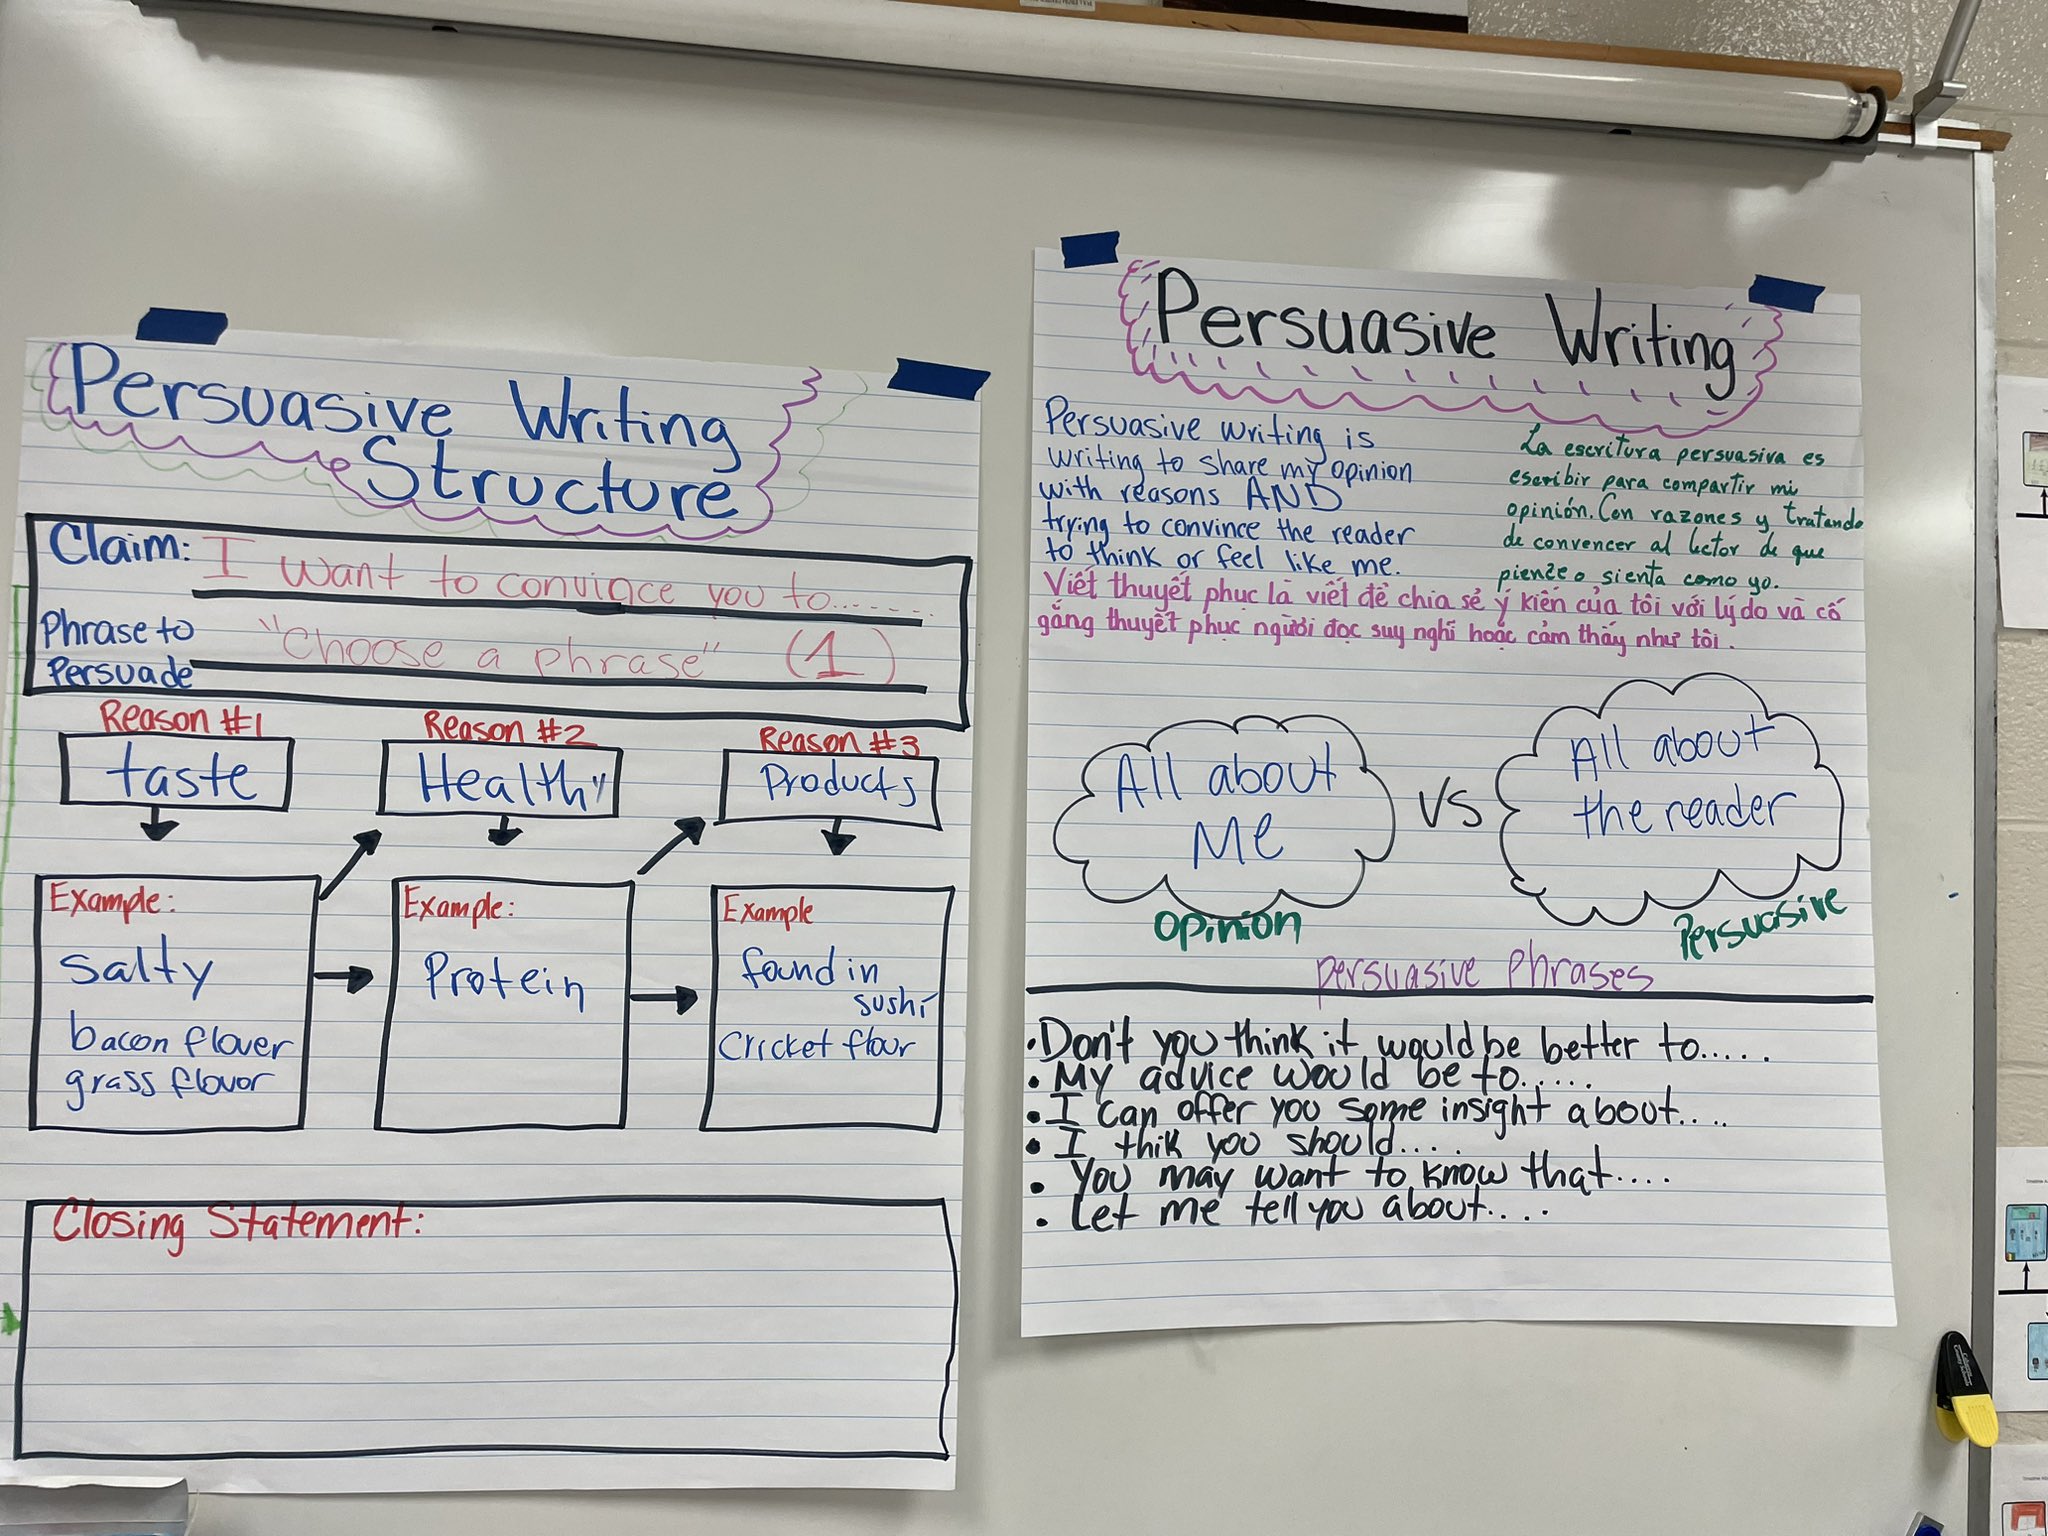 Persuasive Writing
Structure
Claim: I want to convince you to.........
Phrase to
Persuade
"Choose a phrase" (1)
Reason #1
taste
Reason #2
Healthy
Reason #3
Products
Example:
salty
bacon flover
grass flovor
Example:
Protein
Example
found in
sushi
Cricket flour
Closing Statement:
Persuasive Writing
Persuasive writing is
writing to share my opinion
with reasons AND
trying to convince the reader
to think or feel like me.
La escritura persuasiva es
escribir para compartir mi
opinión. Con razones y tratando
de convencer al lector de que
piense o sienta como yo.
Viết thuyết phục là viết để chia sẻ ý kiến của tôi với lý do và cố
gắng thuyết phục người đọc suy nghĩ hoặc cảm thấy như tôi.
All about
Me
Opinion
VS
All about
the reader
Persuasive
persuasive phrases
• Don't you think it would be better to.....
• My advice would be to......
• I can offer you some insight about....
• I thik you should....
• You may want to know that....
• Let me tell you about....